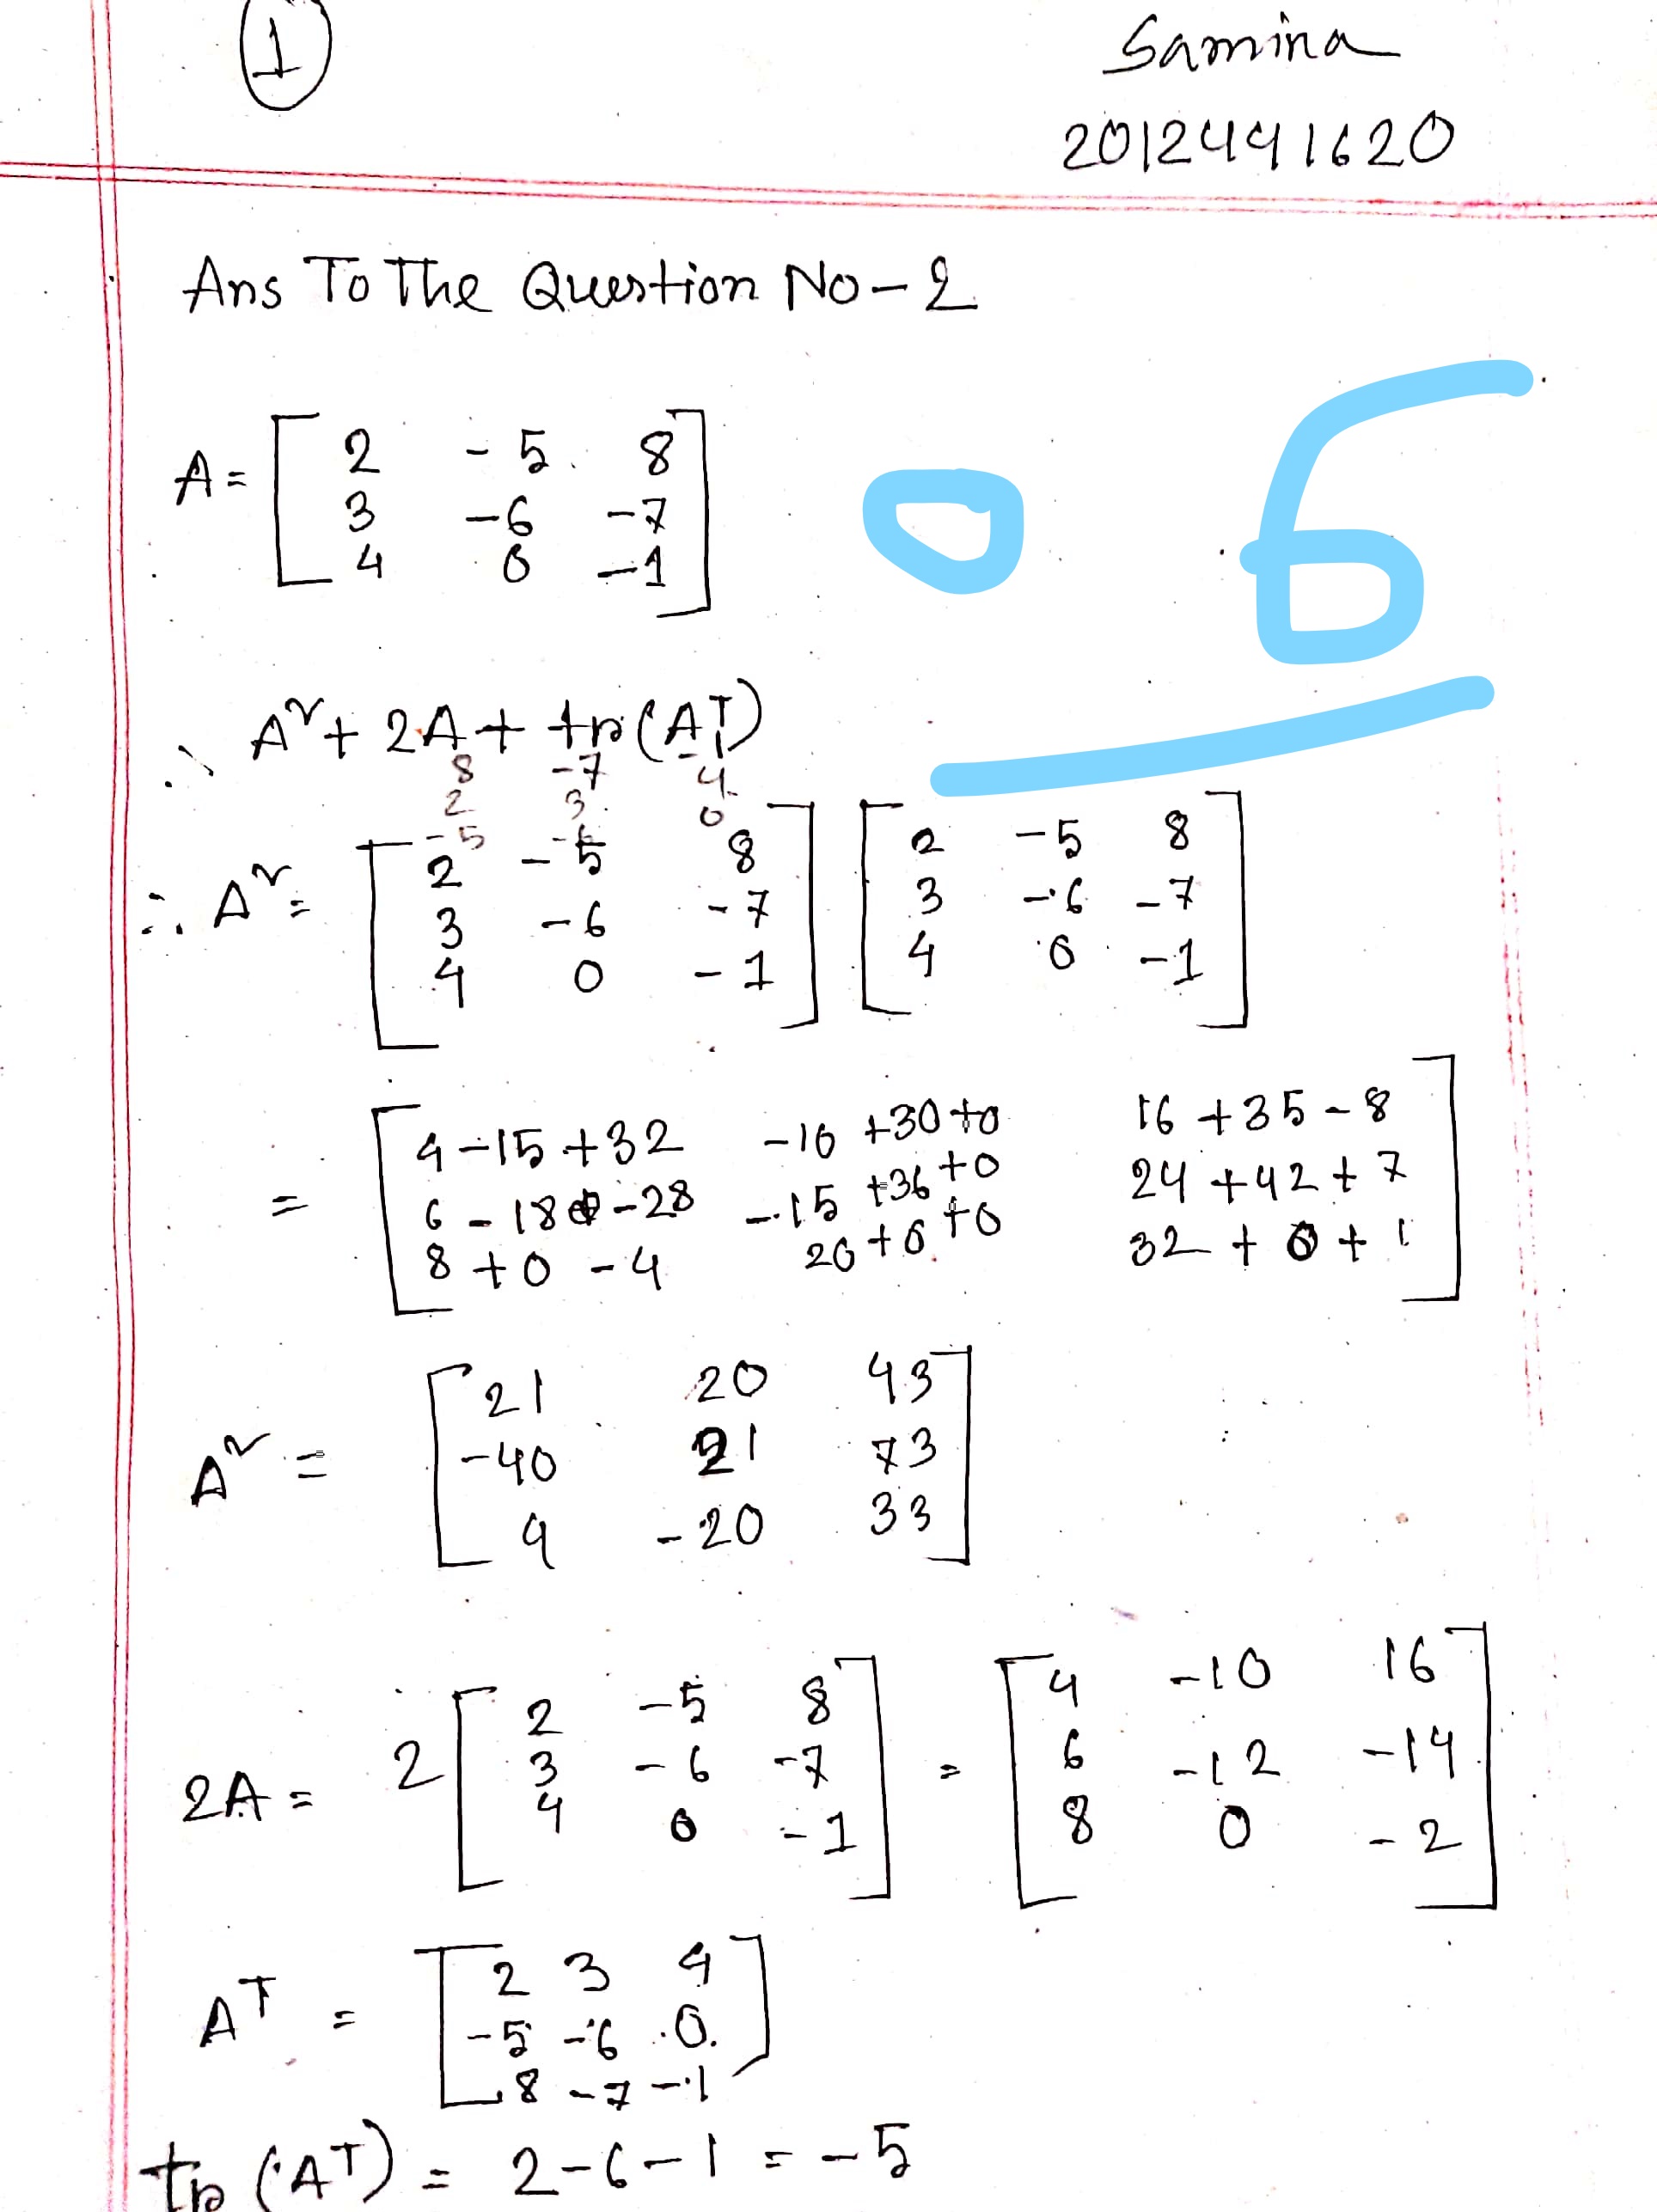 1
Samina
2012441620
Ans To The Question No-2
A = [ 2 -5 8
3 -6 -7
4 0 -1 ]
0 6
∴ A² + 2A + tr(Aᵀ)
8 -7 -1
2 3 4
-5 -6 0
∴ A² = [ 2 -5 8 ] [ 2 -5 8 ]
3 -6 -7 3 -6 -7
4 0 -1 4 0 -1
= [ 4-15+32 -10+30+0 16+35-8
6-18-28 -15+36+0 24+42+7
8+0-4 20+0+0 32+0+1 ]
A² = [ 21 20 43
-40 21 73
4 -20 33 ]
2A = 2 [ 2 -5 8 ] = [ 4 -10 16 ]
3 -6 -7 6 -12 -14
4 0 -1 8 0 -2
Aᵀ = [ 2 3 4
-5 -6 0.
8 -7 -1 ]
tr(Aᵀ) = 2-6-1 = -5